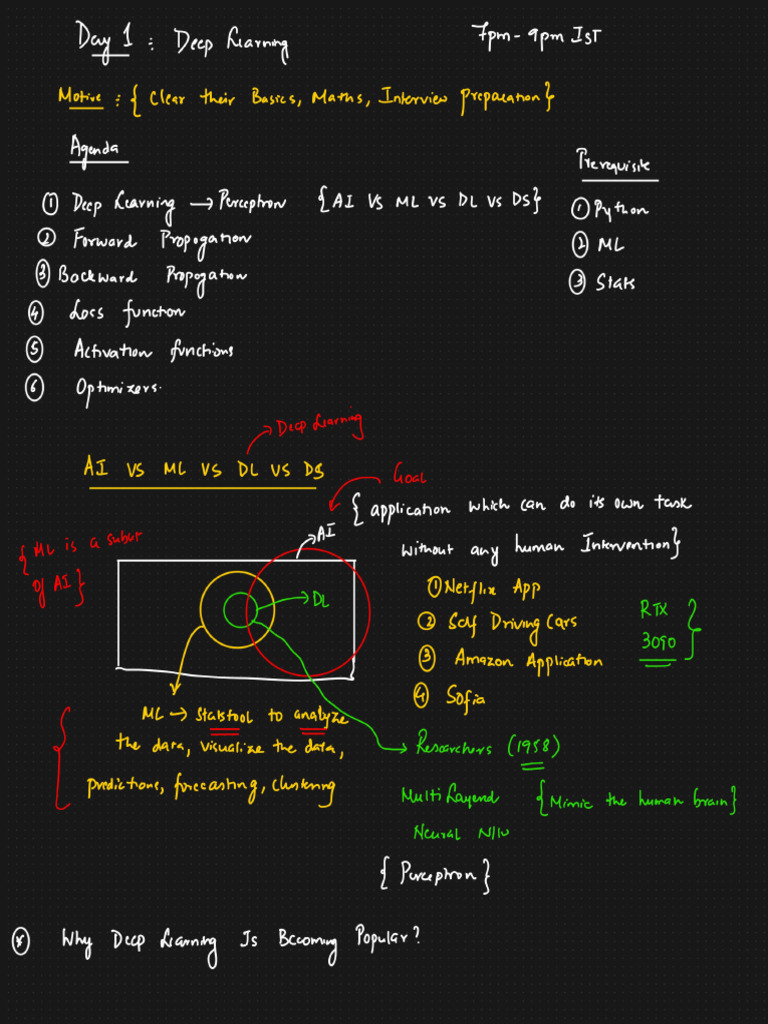 Day 1 : Deep Learning
7pm - 9pm IST
Motive : { Clear their Basics, Maths, Interview Preparation}
Agenda
① Deep Learning → Perceptron {AI VS ML VS DL VS DS}
② Forward Propogation
③ Backward Propogation
④ Loss function
⑤ Activation functions
⑥ Optimizers.
Prerequisite
① Python
② ML
③ Stats
Deep Learning
AI VS ML VS DL VS DS
Goal
{ application which can do its own task
without any human Intervention}
{ ML is a subset
of AI}
AI
DL
① Netflix App
② Self Driving Cars
③ Amazon Application
④ Sofia
RTX
3090
ML → Statstool to analyze
the data, visualize the data,
predictions, forecasting, clustering
Researchers (1958)
Multi Layered
Neural N/W
{Mimic the human brain}
{ Perceptron }
* Why Deep Learning Is Becoming Popular?